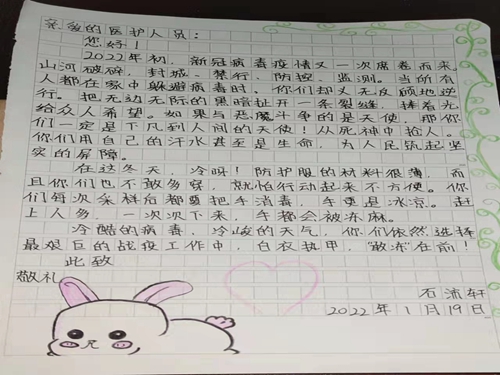 亲爱的医护人员：
您好！
2022年初，新冠病毒疫情又一次席卷而来。
山河破碎，封城、禁行、防控、监测。当所有
人都在家中躲避病毒时。你们却又无反顾地逆
行。把无边无际的黑暗扯开一条裂缝，捧着光
给众人希望。如果与恶魔斗争的是天使，那你
们一定是下凡到人间的天使！从死神中抢人。
你们用自己的汗水甚至是生命，为人民筑起坚
实的屏障。
在这冬天，冷呀！防护服的材料很薄，而
且你们也不敢多穿，就怕行动起来不方便。你
们每次采料台都要把手消毒，手更是冰凉。赶
上人多，一次次下来，手都会被冻麻。
冷酷的病毒，冷峻的天气，你们依然选择
最艰巨的战疫工作中，白衣执甲，"敢冻"在前！
此致
敬礼
石流轩
2022年1月19日